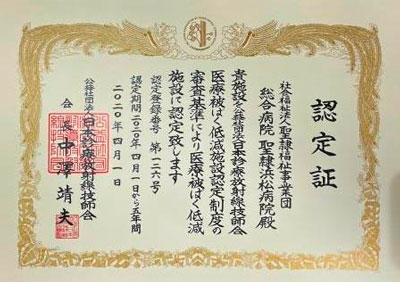 認定証
社会福祉法人聖隷福祉事業団
総合病院 聖隷浜松病院殿
貴施設を公益社団法人日本診療放射線技師会
医療被ばく低減施設認定制度の
審査基準により医療被ばく低減
施設に認定致します
認定登録番号 第一二六号
認定期間二〇二〇年四月一日から五年間
二〇二〇年四月一日
公益社団法人日本診療放射線技師会
会長 中澤靖夫